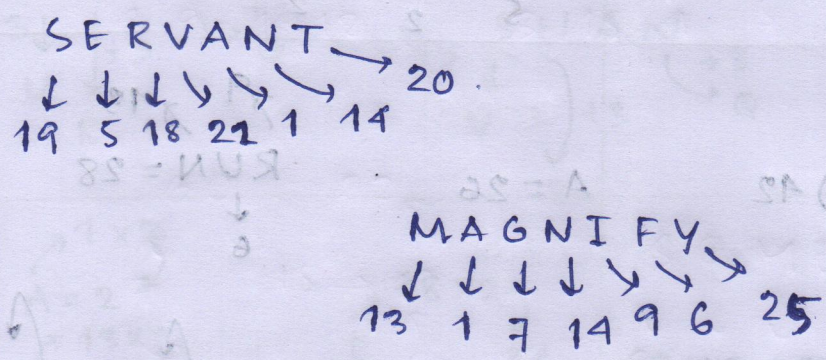 SERVANT
20
19 5 18 22 1 14
MAGNIFY
13 1 7 14 9 6 25